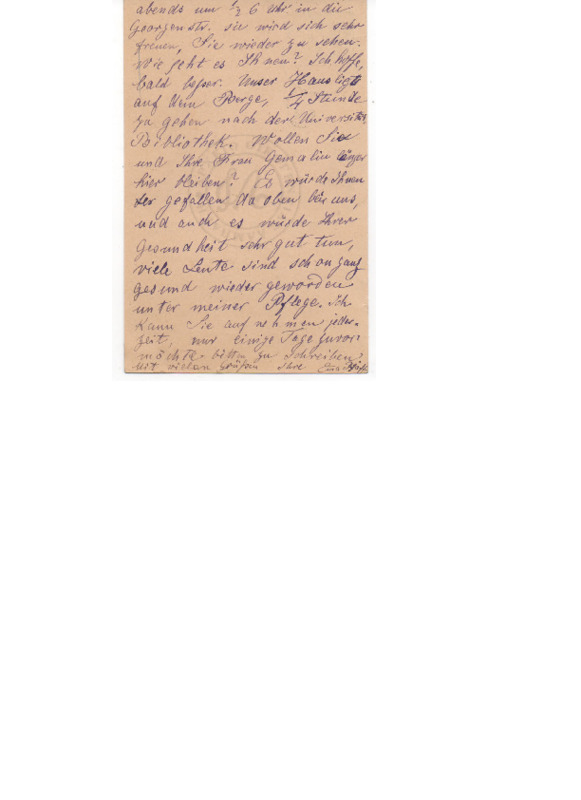 abends um ½ 6 Uhr in die
Georgenstr. sie wird sich sehr
freuen, Sie wieder zu sehen.
Wie geht es Ihnen? Ich hoffe,
bald besser. Unser Haus liegt
auf dem Berge, ¼ Stunde
zu gehen nach der Universitäts
Bibliothek. Wollen Sie
und Ihre Frau Gemalin länger
hier bleiben? Es würde Ihnen
gefallen da oben bei uns,
und auch es würde Ihrer
Gesundheit sehr gut tun,
viele Leute sind schon ganz
gesund wieder geworden
unter meiner Pflege. Ich
kann Sie aufnehmen jeder-
zeit, nur einige Tage zuvor
möchte bitten zu schreiben,
Mit vielen Grüßen Ihre